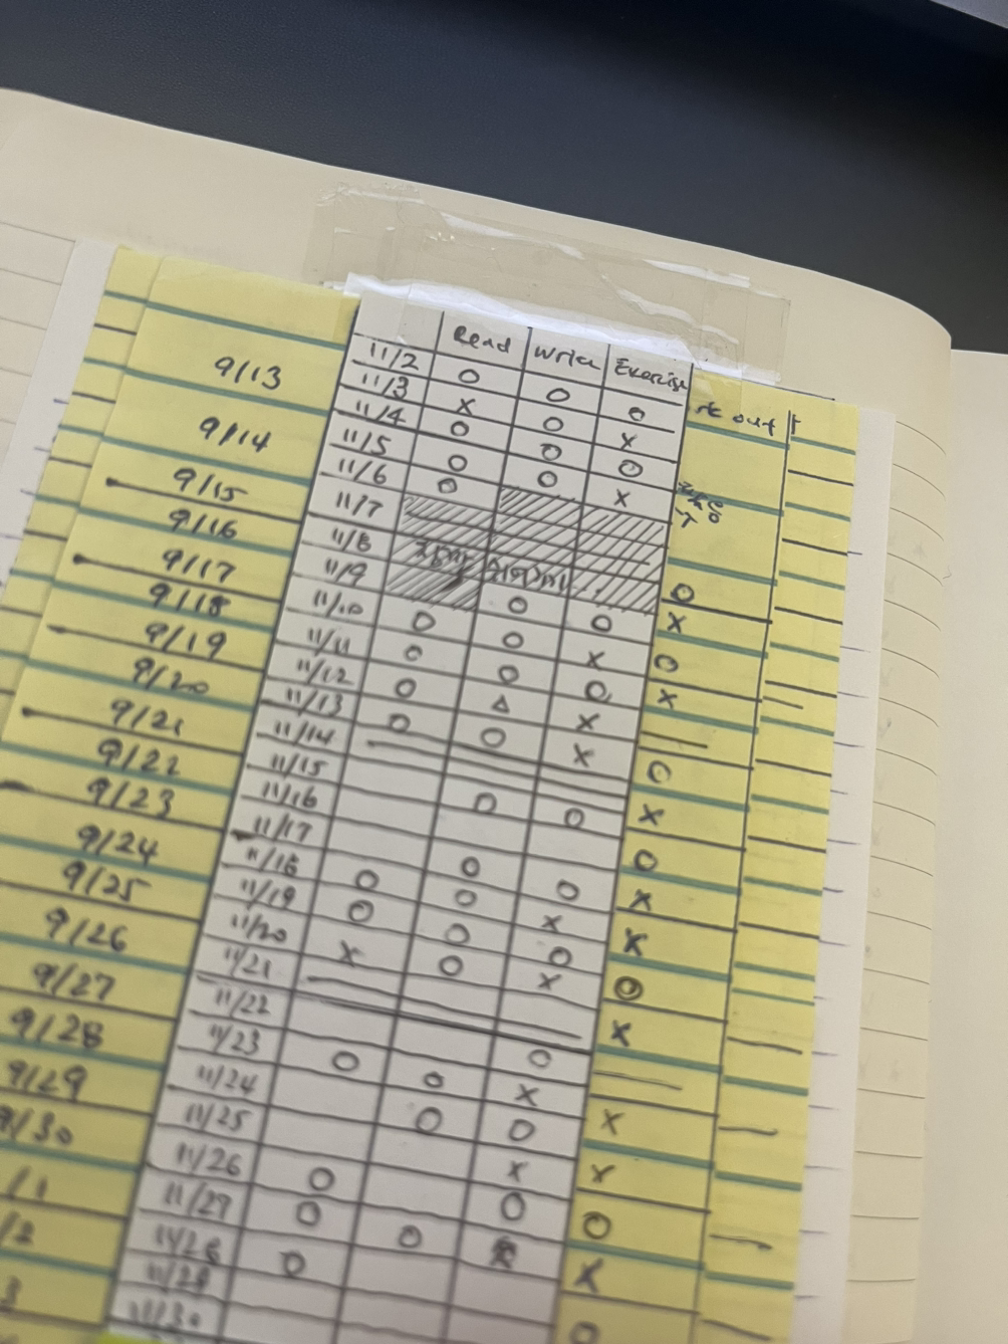 Read Write Exercise
rk out
9/13
9/14
9/15
9/16
9/17
9/18
9/19
9/20
9/21
9/22
9/23
9/24
9/25
9/26
9/27
9/28
9/29
9/30
/1
/2
3
11/2 O O O
11/3 X O X
11/4 O O O
11/5 O O X
11/6 O
11/7
11/8
11/9
11/10 O O O
11/11 O O X
11/12 O O O
11/13 O △ X
11/14 O X
11/15
11/16 O O
11/17
11/18 O O O
11/19 O O X
11/20 X O O
11/21 O X
11/22
11/23 O O O
11/24 O X
11/25 O
11/26 O X
11/27 O O O
11/28 O
11/29
11/30
O
X
O
X
O
X
O
X
X
O
X
X
X
O
X
O